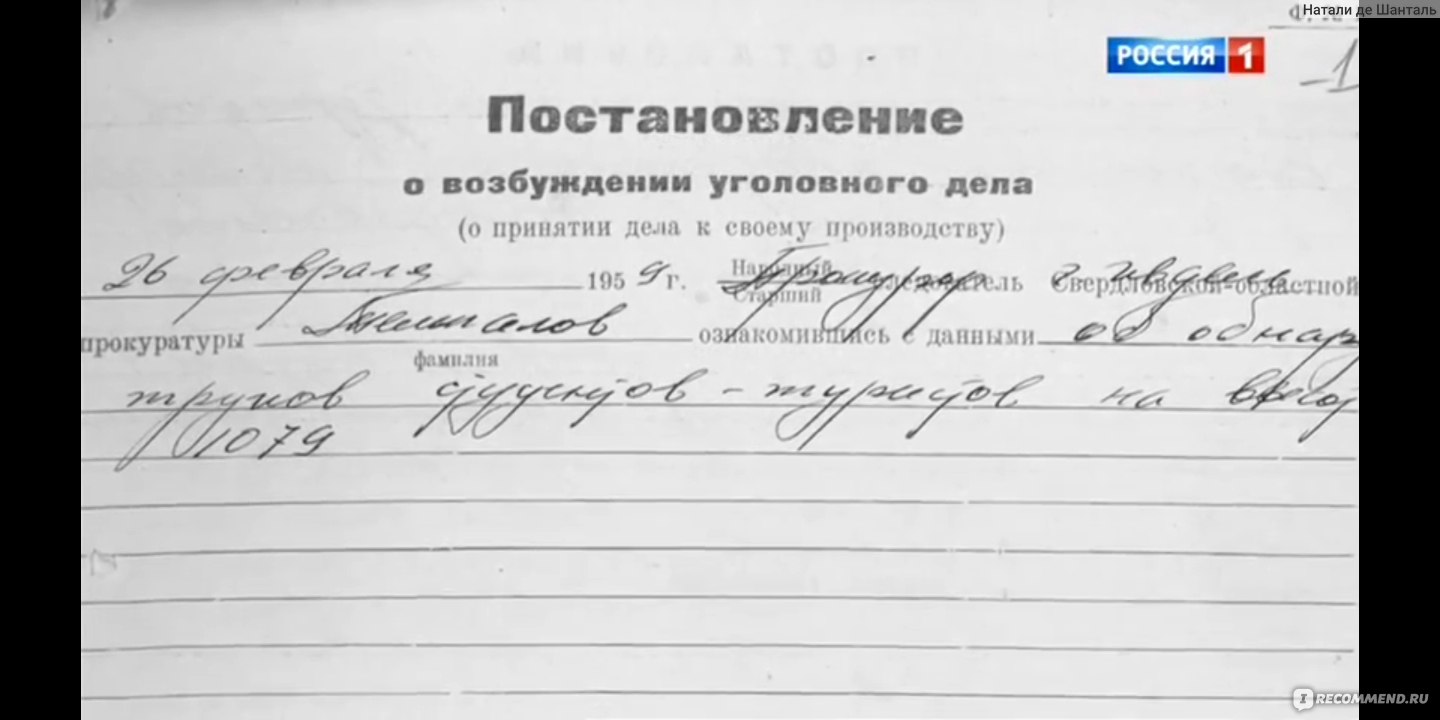 Натали де Шанталь
РОССИЯ 1
-1
Постановление
о возбуждении уголовного дела
(о принятии дела к своему производству)
26 февраля 1959 г. Народный Старший Прокурор следователь г. Ивдель Свердловской областной
прокуратуры Темпалов ознакомившись с данными об обнар
фамилия
трупов студентов-туристов на высот
1079
IRECOMMEND.RU